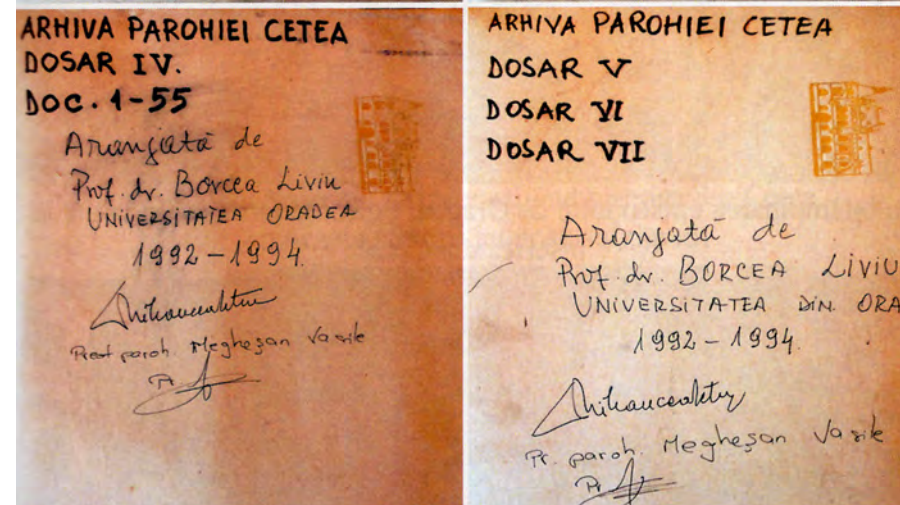 ARHIVA PAROHIEI CETEA
DOSAR IV.
DOC. 1-55
Aranjată de
Prof. dr. Borcea Liviu
UNIVERSITATEA ORADEA
1992-1994.
Preot paroh Megheșan Vasile
Pr.
ARHIVA PAROHIEI CETEA
DOSAR V
DOSAR VI
DOSAR VII
Aranjată de
Prof. dr. BORCEA LIVIU
UNIVERSITATEA DIN ORA
1992-1994.
Pr. paroh. Megheșan Vasile
Pr.